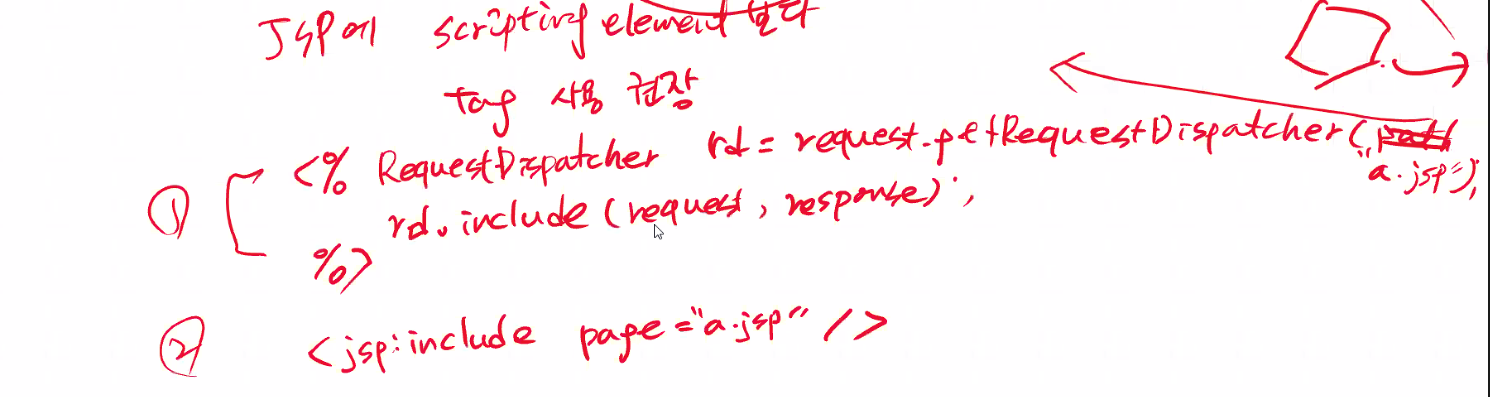 JSP에 scripting element 보다
tag 사용 권장
① <% RequestDispatcher rd = request.getRequestDispatcher("
a.jsp");
rd.include(request, response);
%>
② <jsp:include page="a.jsp" />